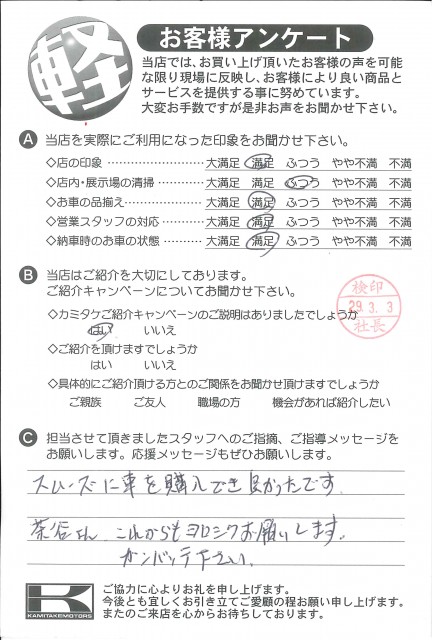 軽
お客様アンケート
当店では、お買い上げ頂いたお客様の声を可能
な限り現場に反映し、お客様により良い商品と
サービスを提供する事に努めています。
大変お手数ですが是非お声をお聞かせ下さい。
A 当店を実際にご利用になった印象をお聞かせ下さい。
◇店の印象 …………………… 大満足 満足 ふつう やや不満 不満
◇店内・展示場の清掃………… 大満足 満足 ふつう やや不満 不満
◇お車の品揃え………………… 大満足 満足 ふつう やや不満 不満
◇営業スタッフの対応………… 大満足 満足 ふつう やや不満 不満
◇納車時のお車の状態………… 大満足 満足 ふつう やや不満 不満
B 当店はご紹介を大切にしております。
ご紹介キャンペーンについてお聞かせ下さい。
検印
29.3.3
社長
◇カミタケご紹介キャンペーンのご説明はありましたでしょうか
はい いいえ
◇ご紹介を頂けますでしょうか
はい いいえ
◇具体的にご紹介頂ける方とのご関係をお聞かせ頂けますでしょうか
ご親族 ご友人 職場の方 機会があれば紹介したい
C 担当させて頂きましたスタッフへのご指摘、ご指導メッセージを
お願いします。応援メッセージもぜひお願いします。
スムーズに車を購入でき良かったです。
茶谷さん これからもヨロシクお願いします。
ガンバッテ下さい。
K
KAMITAKEMOTORS
ご協力に心よりお礼を申し上げます。
今後とも宜しくお引き立てご愛顧の程お願い申し上げます。
またのご来店を心からお待ちしております。